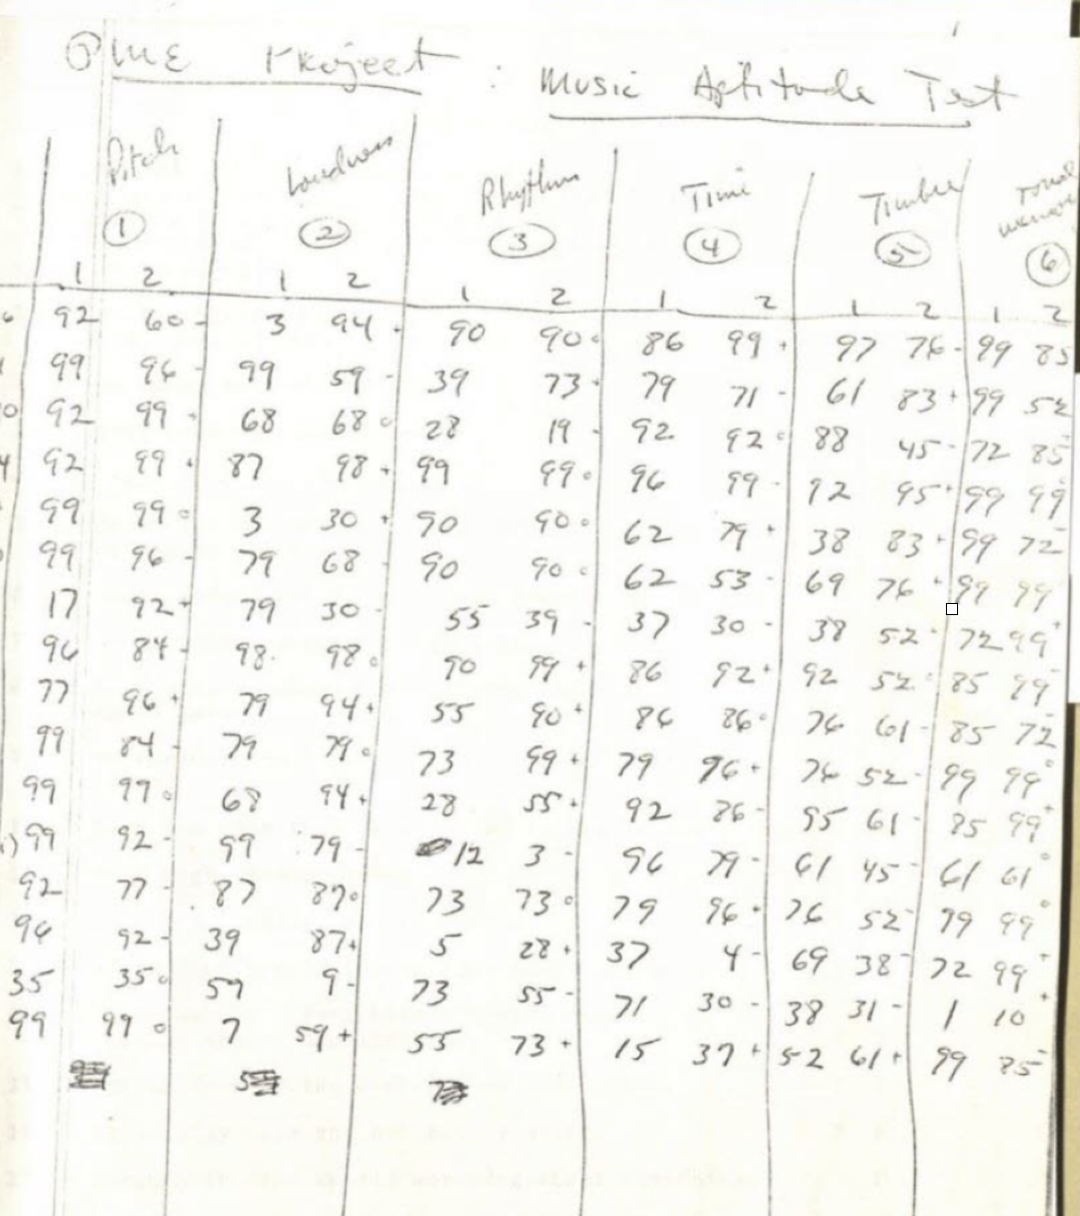 Project : Music Aptitude Test
Pitch Loudness Rhythm Time Timbre Tonal
1 2 3 4 5 6
1 2 1 2 1 2 1 2 1 2 1 2
92 60 - 3 94 + 90 90 o 86 99 + 97 76 - 99 85
99 96 - 99 59 - 39 73 + 79 71 - 61 83 + 99 52
92 99 + 68 68 o 28 19 - 92 92 o 88 45 - 72 85
92 99 + 87 98 + 99 99 o 96 99 - 92 95 + 99 99 o
99 99 o 3 30 + 90 90 o 62 79 + 38 83 + 99 72 -
99 96 - 79 68 - 90 90 o 62 53 - 69 76 + 99 99 o
17 92 + 79 30 - 55 39 - 37 30 - 38 52 - 72 99 +
96 84 - 98 98 o 90 99 + 86 92 + 92 52 - 85 99
77 96 + 79 94 + 55 90 + 86 86 o 76 61 - 85 72 -
99 84 - 79 79 o 73 99 + 79 96 + 76 52 - 99 99 o
99 99 o 68 94 + 28 55 + 92 86 - 95 61 - 85 99 +
99 92 - 99 79 - 12 3 - 96 79 - 61 45 - 61 61 o
92 77 - 87 87 o 73 73 o 79 96 + 76 52 - 99 99 o
96 92 - 39 87 + 5 28 + 37 4 - 69 38 - 72 99 +
35 35 o 59 9 - 73 55 - 71 30 - 38 31 - 1 10 +
99 99 o 7 59 + 55 73 + 15 37 + 52 61 + 99 85 -